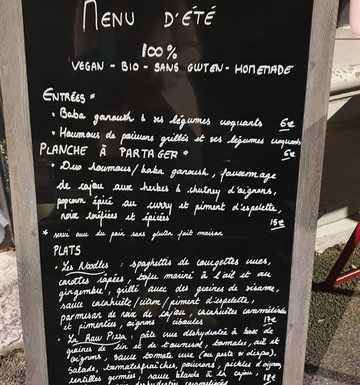 MENU D'ÉTÉ
100%
VEGAN - BIO - SANS GLUTEN - HOMEMADE
ENTRÉES *
• Baba ganoush & ses légumes croquants 6€
• Houmous de poivrons grillés et ses légumes croquants 6€
PLANCHE À PARTAGER *
• Duo houmous / baba ganoush, fauxmage
de cajou aux herbes & chutney d'oignons,
popcorn épicé au curry et piment d'espelette,
noix torréfiées et épicées 15€
* servi avec du pain sans gluten fait maison
PLATS
• Les Noodles : spaghettis de courgettes crues,
carottes râpées, tofu mariné à l'ail et au
gingembre, grillé avec des graines de sésame,
sauce cacahuète/citron/piment d'espelette,
parmesan de noix de cajou, cacahuètes caramélisées
et pimentées, oignons ciboules 17€
• La Raw Pizza : pâte crue déshydratée à base de
graines de lin et de tournesol, tomates, ail et
oignons, sauce tomate crue (ou pesto si dispo).
Salade, tomates fraîches, poivrons, pickles d'oignon,
lentilles germées, sauce blanche à la cajou, 18€